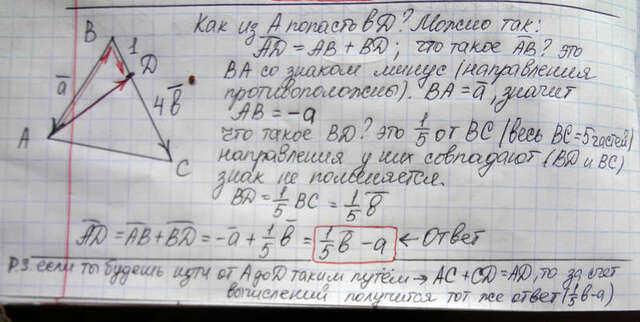 Как из А попасть в D? Можно так:
B
1
D
ā
4b̄
A
C
A̅D̅ = AB + B̅D̅; что такое A̅B̅? это
BA со знаком минус (направления
противоположны). BA = ā, значит
AB = -a
что такое BD? это 1/5 от BC (весь BC = 5 частей)
направления у них совпадают (BD и BC)
знак не поменяется.
BD = 1/5 BC = 1/5 b̄
A̅D̅ = A̅B̅ + B̅D̅ = -ā + 1/5 b̄ = 1/5 b̄ - a ← Ответ
P.S. если ты будешь идти от A до D таким путём → AC + CD = AD, то за счет
вычислений получится тот же ответ (1/5 b - a)